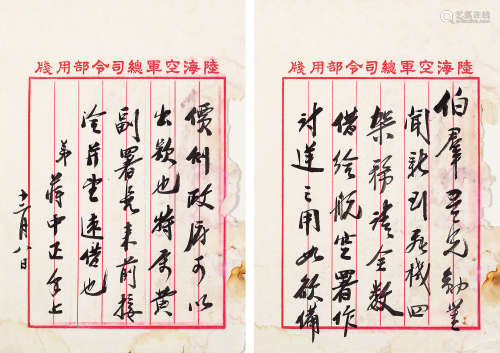 陸海空軍總司令部用牋
伯羣吾兄勛鑒
聞新到飛機四
架務請全數
借給航空署作
討逆之用如欲備
陸海空軍總司令部用牋
價則政府可以
出款也特屬黃
副署長來前接
洽并望速借也
弟 蔣中正手上
月八日